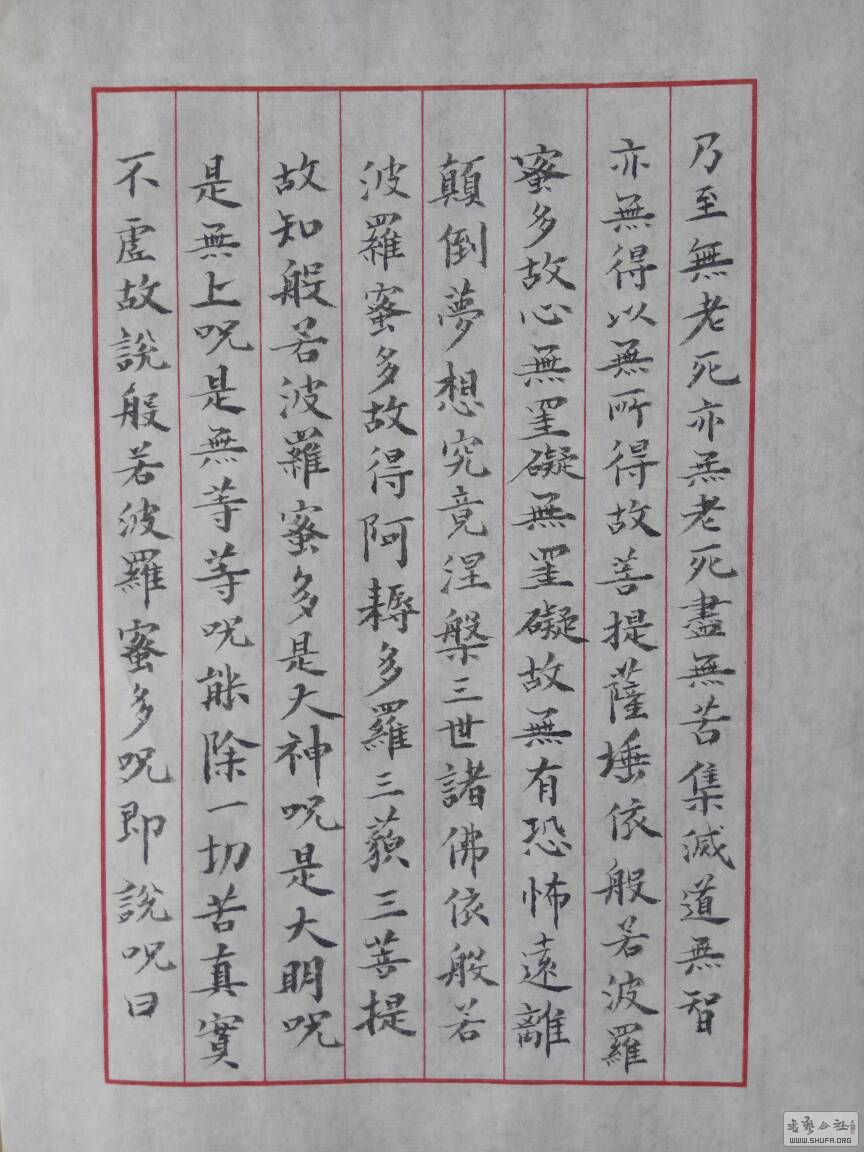 乃至無老死亦無老死盡無苦集滅道無智
亦無得以無所得故菩提薩埵依般若波羅
蜜多故心無罣礙無罣礙故無有恐怖遠離
顛倒夢想究竟涅槃三世諸佛依般若
波羅蜜多故得阿耨多羅三藐三菩提
故知般若波羅蜜多是大神呪是大明呪
是無上呪是無等等呪能除一切苦真實
不虛故說般若波羅蜜多呪即說呪曰
书艺公社
WWW.SHUFA.ORG